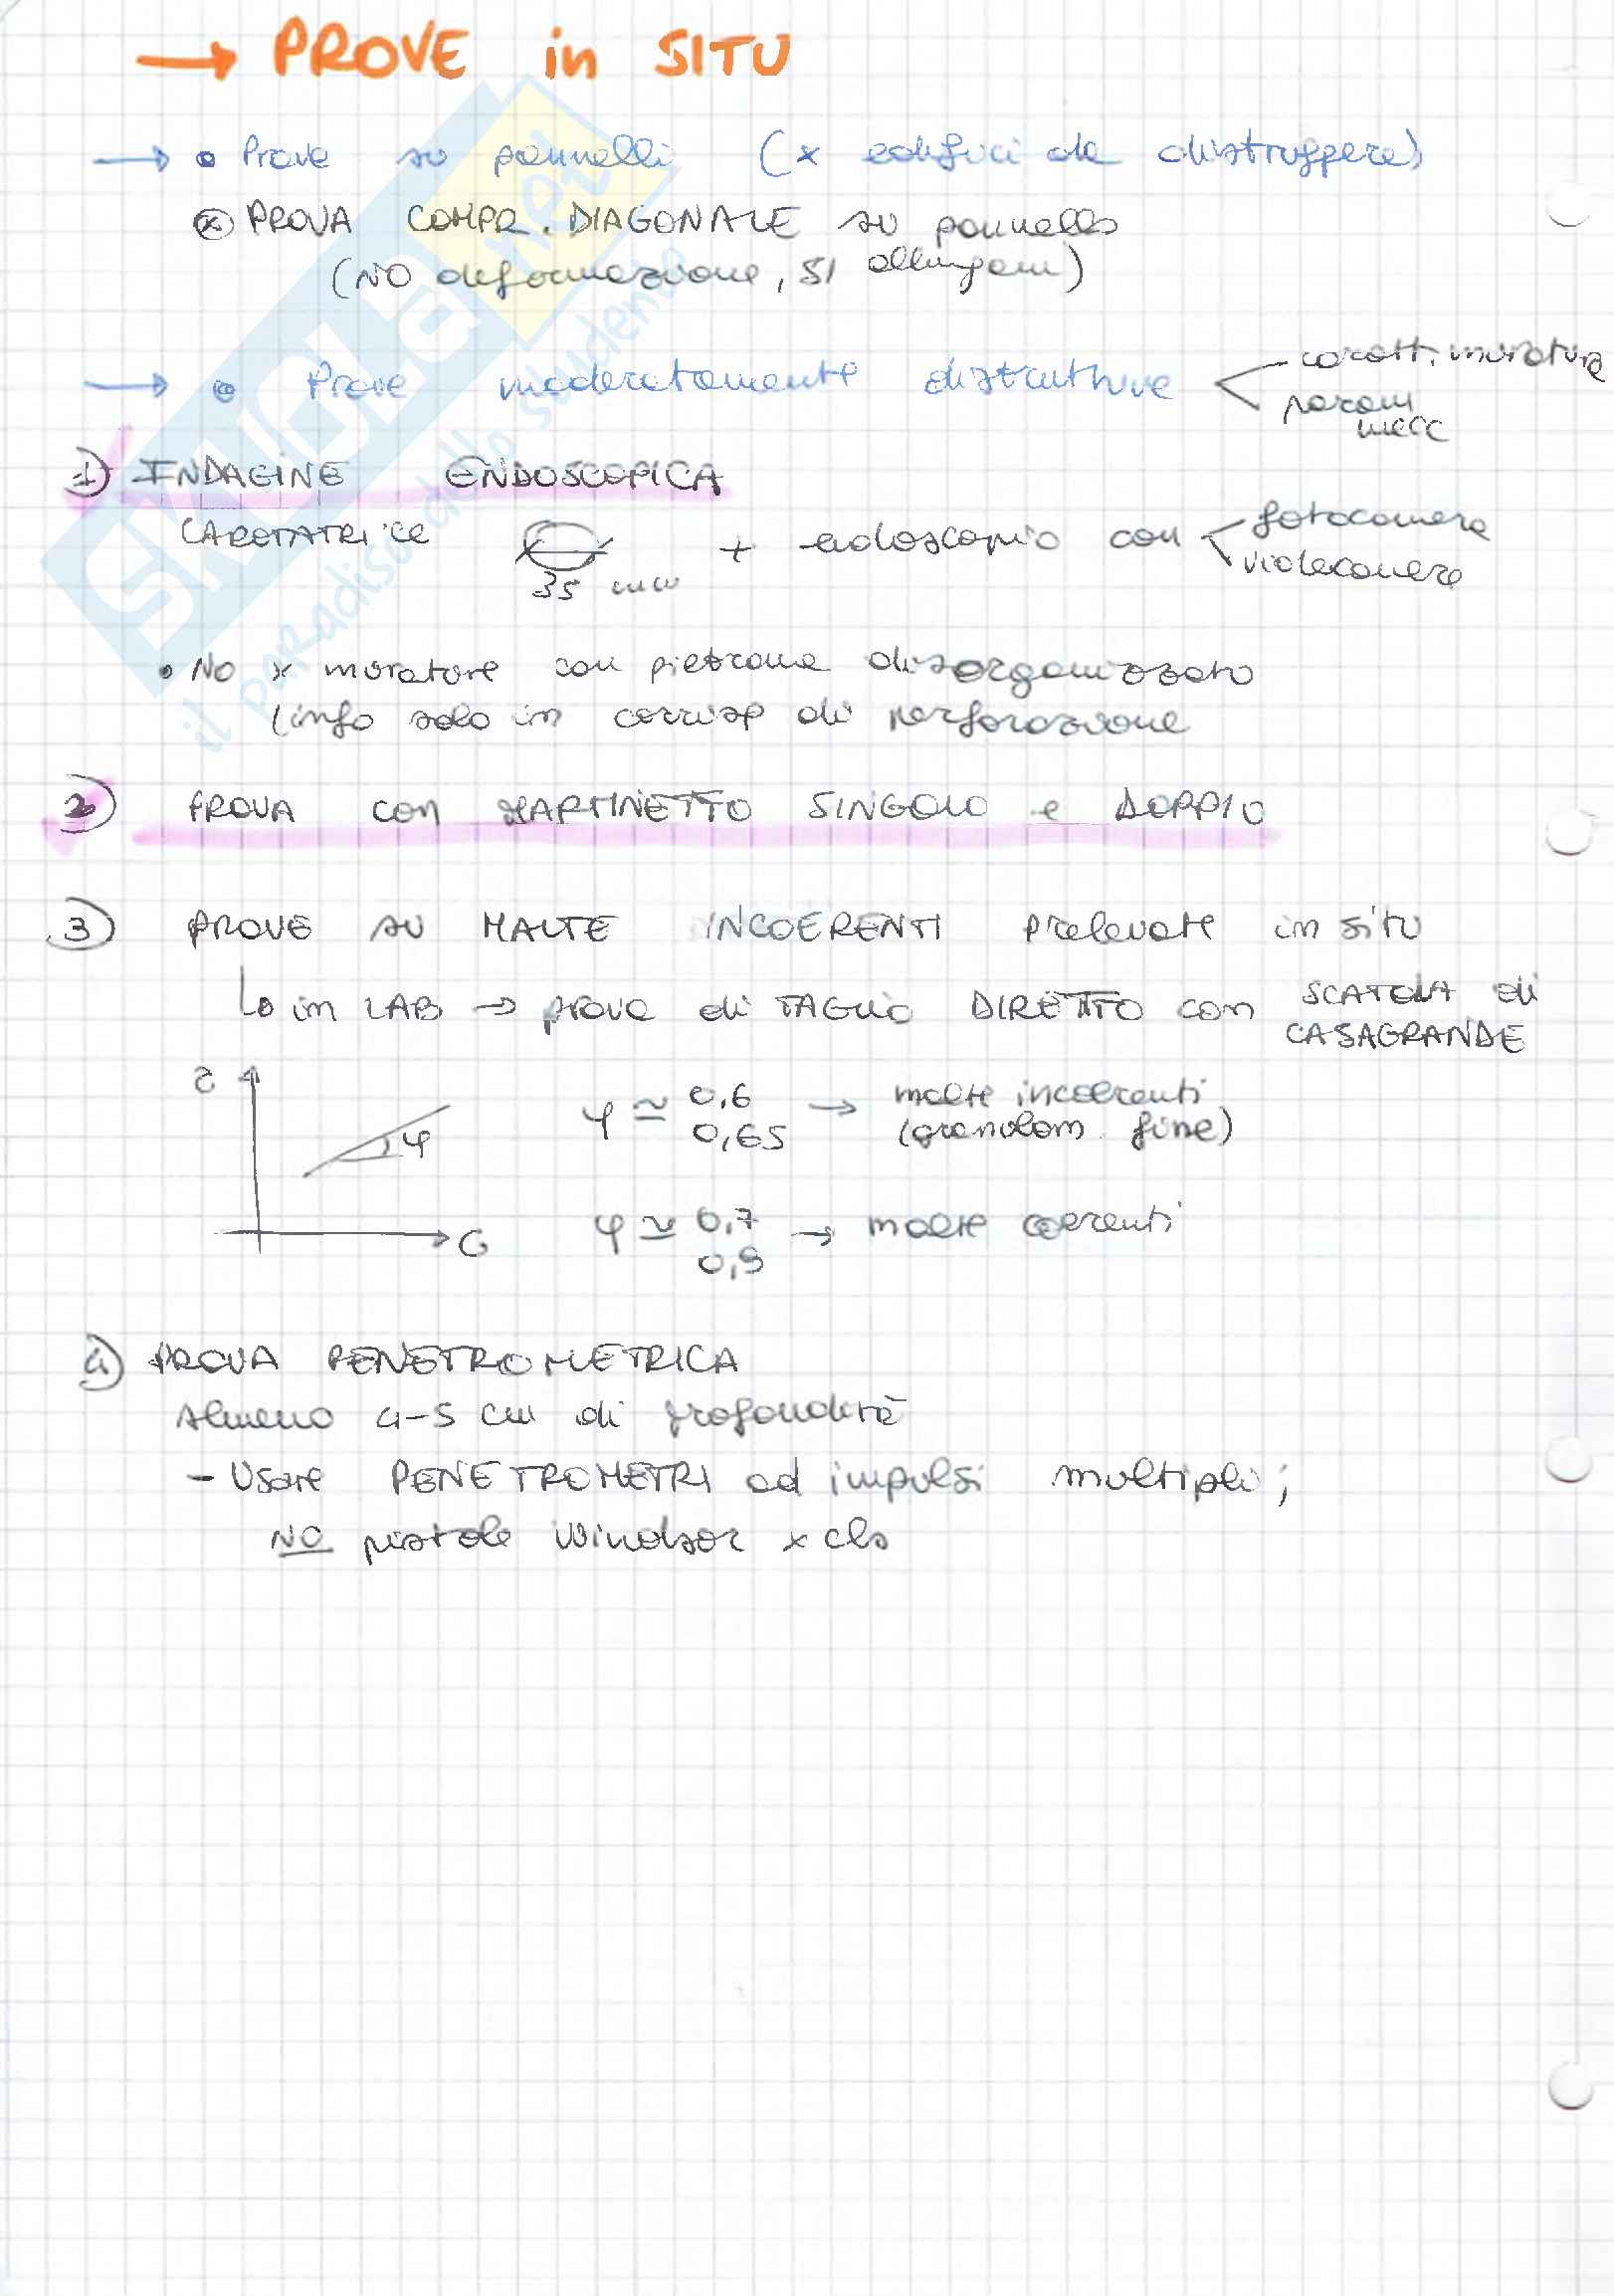 → PROVE in SITU
→ • Prove su pannelli (x edifici da distruggere)
⊗ PROVA COMPR. DIAGONALE su pannello
(NO deformazione, SI allungam)
→ • Prove moderatamente distruttive < caratt. muratura
param
mecc
1) INDAGINE ENDOSCOPICA
CAROTATRICE 35 mm + endoscopio con < fotocamera
videocamera
• No x murature con pietrame disorganizzato
(info solo in corrisp di perforazione
2) PROVA con MARTINETTO SINGOLO e DOPPIO
3) PROVE su MALTE INCOERENTI prelevate in situ
↳ in LAB → prova di TAGLIO DIRETTO con SCATOLA di
CASAGRANDE
τ
φ
σ
φ ≃ 0,6 → malte incoerenti
0,65 (granulom. fine)
φ ≃ 0,7 → malte coerenti
0,9
4) PROVA PENETROMETRICA
Almeno 4-5 cm di profondità
- Usare PENETROMETRI ad impulsi multipli;
NO pistole Windsor x cls
SKUOLA.net
il paradiso dello studente